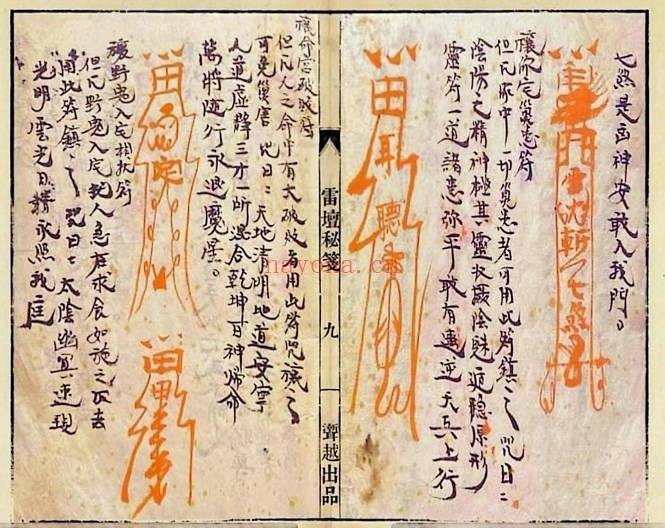 七煞是凶神安敢入我門。
斬七煞
但凡家中一切冤患者可用此符鎮之 咒曰：
陰陽之精神極其靈收藏陰魅遁隱原形
靈符一道諸患弥平敢有違逆天兵上行
雷壇秘箋 九 聲越出品
禳命宮破敗符
但凡人之命中有大破敗者用此符咒禳之
可免災 咒曰：天地清明地道安寧
人道虛靜三才一所混合乾坤百神歸命
萬將隨行永退魔星。
禳野鬼入宅相扰符
但凡野鬼入宅扰人急在求食如施之不去
用此符鎮之咒曰：太陰幽冥速現
光明雲光日精永照我庭
nayona.cn